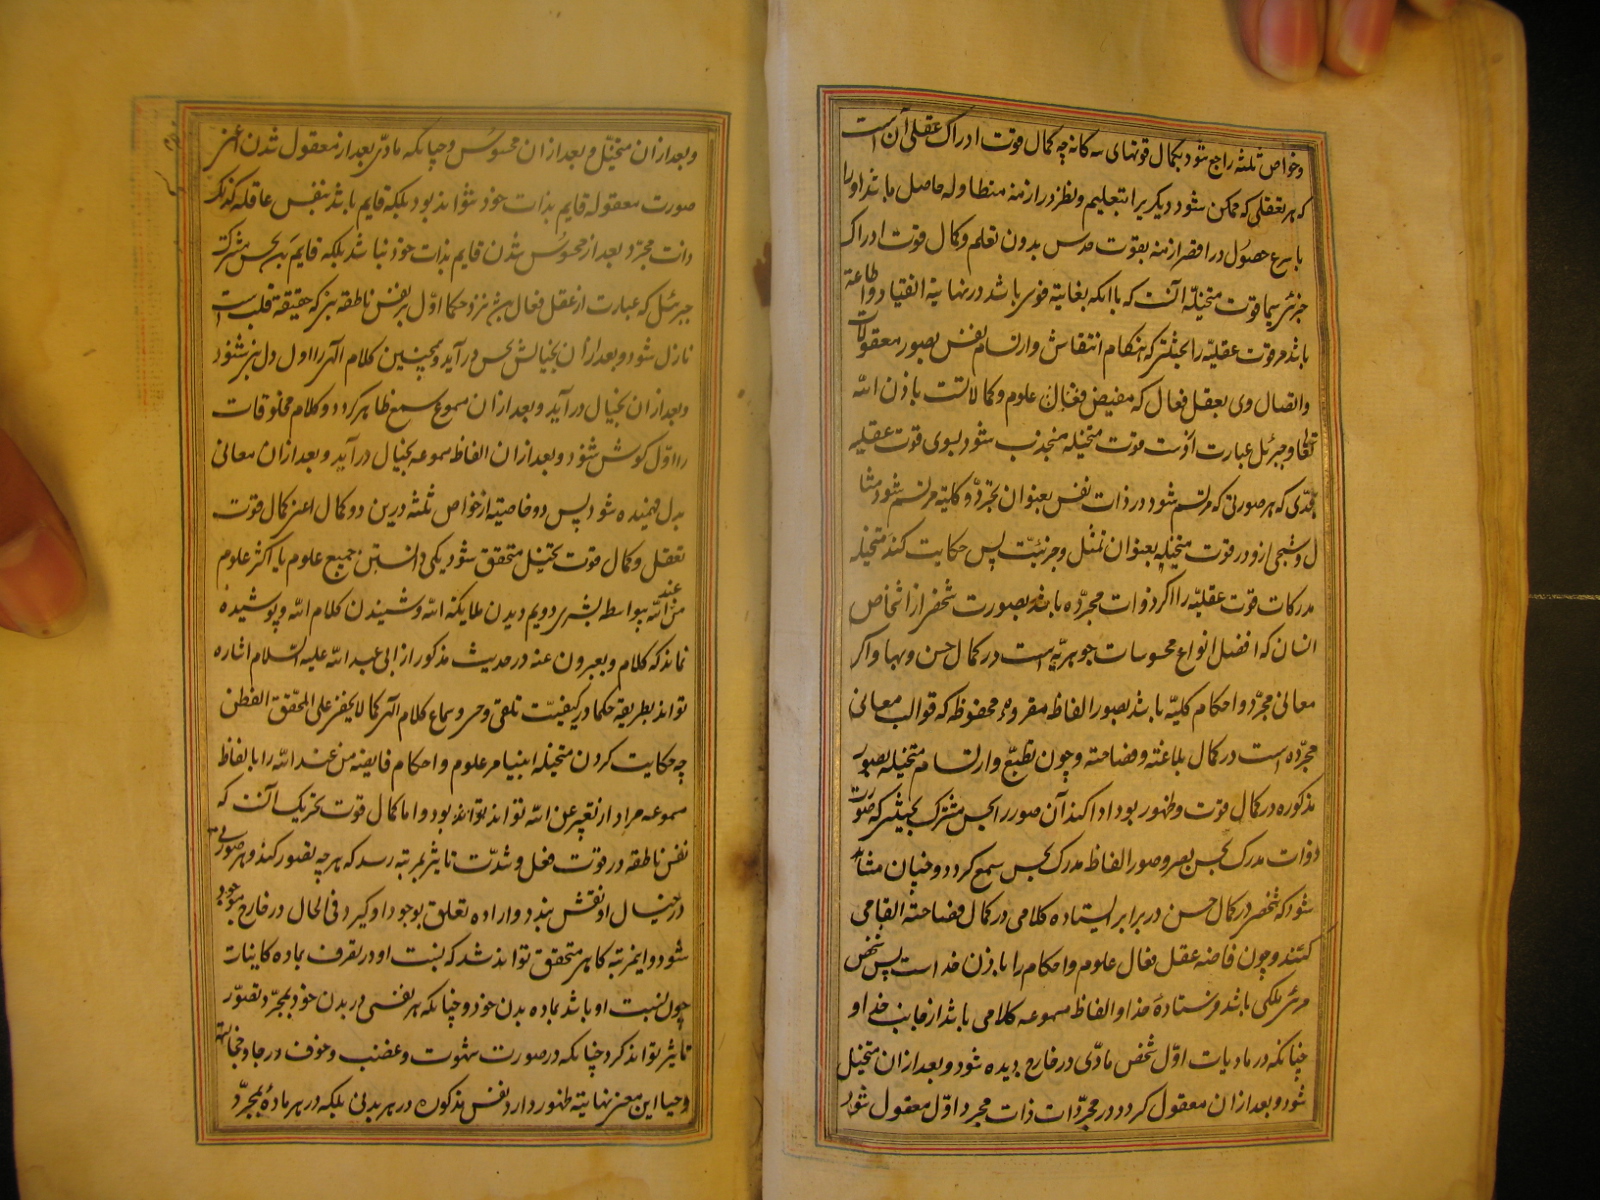 و خواص ثلثه راجع شود بکمال قوتهای سه کانه چه کمال قوت ادراک عقلی آن است
که هر تعقلی که ممکن شود دیکر یرا بتعلیم و نظر در ازمنه متطاوله حاصل باشد او را
باسرع حصول در اقصر ازمنه بقوت حدس بدون تعلم و کمال قوت ادراک
جزئی سیما قوت متخیله آنست که با آنکه بغایة قوی باشد در نهایة انقیاد و اطاعة
باشد مر قوت عقلیه را بحیثیتی که هنکام انتقاش و ارتسام نفس بصور معقولات
و اتصال وی بعقل فعال که مفیض علوم و کمالاتست باذن الله
تعالی و جبرئل عبارت ازوست قوت متخیله منجذب شود بسوی قوت عقلیه
بقدری که هر صورتی که مرتسم شود در ذات نفس بعنوان تجرد و کلیه مرتسم شود مثا
ل و شبحی ازو در قوت متخیله بعنوان تمثل و جزئیت پس حکایت کند متخیله
مدرکات قوت عقلیه را اکر ذوات مجرده باشد بصورت شخصی از اشخاص
انسان که افضل انواع محسوسات جوهریه است در کمال حسن و بها و اکر
معانی مجرد و احکام کلیه باشد بصور الفاظ مقروه محفوظه که قوالب معانی
مجرده است در کمال بلاغته و فصاحته و چون تطبع و ارتسام متخیله بصور
مذکوره در کمال قوت و ظهور بود ادا کند آن صور را بحس مشترک بحیثیتی که صورت
ذوات مدرک بحس بصر و صور الفاظ مدرک بحس سمع کردد و چنان مشاهد
شود که شخصی در کمال حسن در برابر ایستاده کلامی در کمال فصاحته القا می
کند و چون فاضه عقل فعال علوم و احکام را باذن خداست پس شخص
مرئی ملکی باشد فرستادهٔ خدا و الفاظ مسموعه کلامی باشد از جانب خدا و
چنانکه در مادیات اول شخص مادی در خارج دیده شود و بعد ازان متخیل
شود و بعد ازان معقول کردد در مجردات ذات مجرد اول معقول شود
و بعد ازان متخیل و بعد ازان محسوس و چنانکه مادی بعد از معقول شدن اعنی
صورت معقوله قایم بذات خود نتواند بود بلکه قایم باشد بنفس عاقله کذلک
ذات مجرد بعد از محسوس شدن قایم بذات خود نباشد بلکه قایم بحس مشترک
جبرئل که عبارت از عقل فعال نزد حکما اول بر نفس ناطقه نبی که حقیقة قلب است
نازل شود و بعد ازان بخیالش بحس درآید و همچنین کلام الهی را اول دل نبی شنود
و بعد ازان بخیال درآید و بعد ازان مسموع سمع ظاهر کردد و کلام مخلوقات
را اول کوش شنود و بعد ازان الفاظ مسموعه بخیال درآید و بعد ازان معانی
بدل فهمیده شود پس دو خاصیته از خواص ثلثه درین دو کمال اعنی کمال قوت
تعقل و کمال قوت تخیل متحقق شود یکی دانستن جمیع علوم یا اکثر علوم
من عند الله بیواسطه بشری دویم دیدن ملایکه الله و شنیدن کلام الله و پوشیده
نماند که کلام و یعبرون عنه در حدیث مذکور از ابی عبد الله علیه السلام اشاره
تواند بطریقه حکما در کیفیت تلقی وحی و سماع کلام الهی کما لا یخفی علی المحقق الفطن
چه حکایت کردن متخیله انبیا مر علوم و احکام فایضه من عند الله را بالفاظ
مسموعه مراد از تعبیر عن الله تواند بود و اما کمال قوت تحریک آنست که
نفس ناطقه در قوت فعل و شدت تاثیر بمرتبه رسد که هر چه تصور کند و هر صورتی
در خیال او نقش بندد و اراده تعلق بوجود او کیرد فی الحال در خارج موجود
شود و اینمرتبه کاهی متحقق تواند شد که نسبت او در تصرف بماده کاینات
چون نسبت او باشد بماده بدن خود و چنانکه هر نفسی در بدن خود بمجرد تصور
تاثیر تواند کرد چنانکه در صورت شهوت و غضب و خوف و رجا و خجالة
و حیا این معنی نهایته ظهور دارد نفس مذکوره در هر بدنی بلکه در هر مادهٔ بمجرد